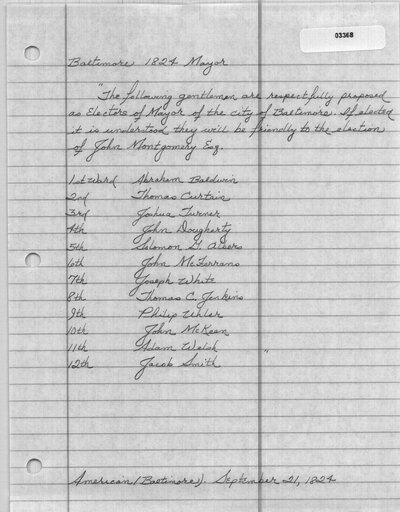 03368
Baltimore 1824 Mayor
"The following gentlemen are respectfully proposed
as Electors of Mayor of the city of Baltimore. If elected
it is understood they will be friendly to the election
of John Montgomery Esq.
1st Ward Abraham Baldwin
2nd Thomas Curtain
3rd Joshua Turner
4th John Dougherty
5th Solomon G. Albers
6th John McFerrans
7th Joseph White
8th Thomas C. Jenkins
9th Philip Uhler
10th John McKean
11th Adam Welsh
12th Jacob Smith "
American (Baltimore). September 21, 1824